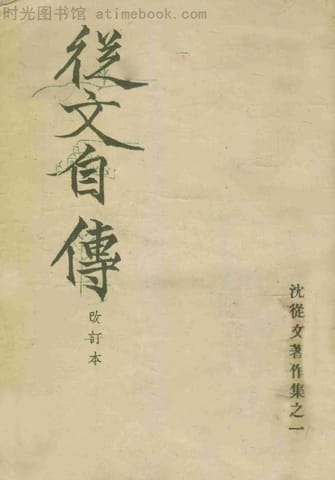 时光图书馆 - atimebook.com
從文自傳
改訂本
沈從文著作集之一